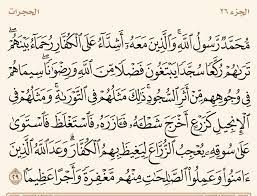 الجزء ٢٦ الحجرات
مُّحَمَّدٌ رَّسُولُ ٱللَّهِۚ وَٱلَّذِينَ مَعَهُۥٓ أَشِدَّآءُ عَلَى ٱلْكُفَّارِ رُحَمَآءُ بَيْنَهُمْۖ
تَرَىٰهُمْ رُكَّعًا سُجَّدًا يَبْتَغُونَ فَضْلًا مِّنَ ٱللَّهِ وَرِضْوَٰنًاۖ سِيمَاهُمْ
فِى وُجُوهِهِم مِّنْ أَثَرِ ٱلسُّجُودِۚ ذَٰلِكَ مَثَلُهُمْ فِى ٱلتَّوْرَىٰةِۚ وَمَثَلُهُمْ فِى
ٱلْإِنجِيلِ كَزَرْعٍ أَخْرَجَ شَطْـَٔهُۥ فَـَٔازَرَهُۥ فَٱسْتَغْلَظَ فَٱسْتَوَىٰ
عَلَىٰ سُوقِهِۦ يُعْجِبُ ٱلزُّرَّاعَ لِيَغِيظَ بِهِمُ ٱلْكُفَّارَۗ وَعَدَ ٱللَّهُ ٱلَّذِينَ
ءَامَنُوا۟ وَعَمِلُوا۟ ٱلصَّٰلِحَٰتِ مِنْهُم مَّغْفِرَةً وَأَجْرًا عَظِيمًۢا ٢٩